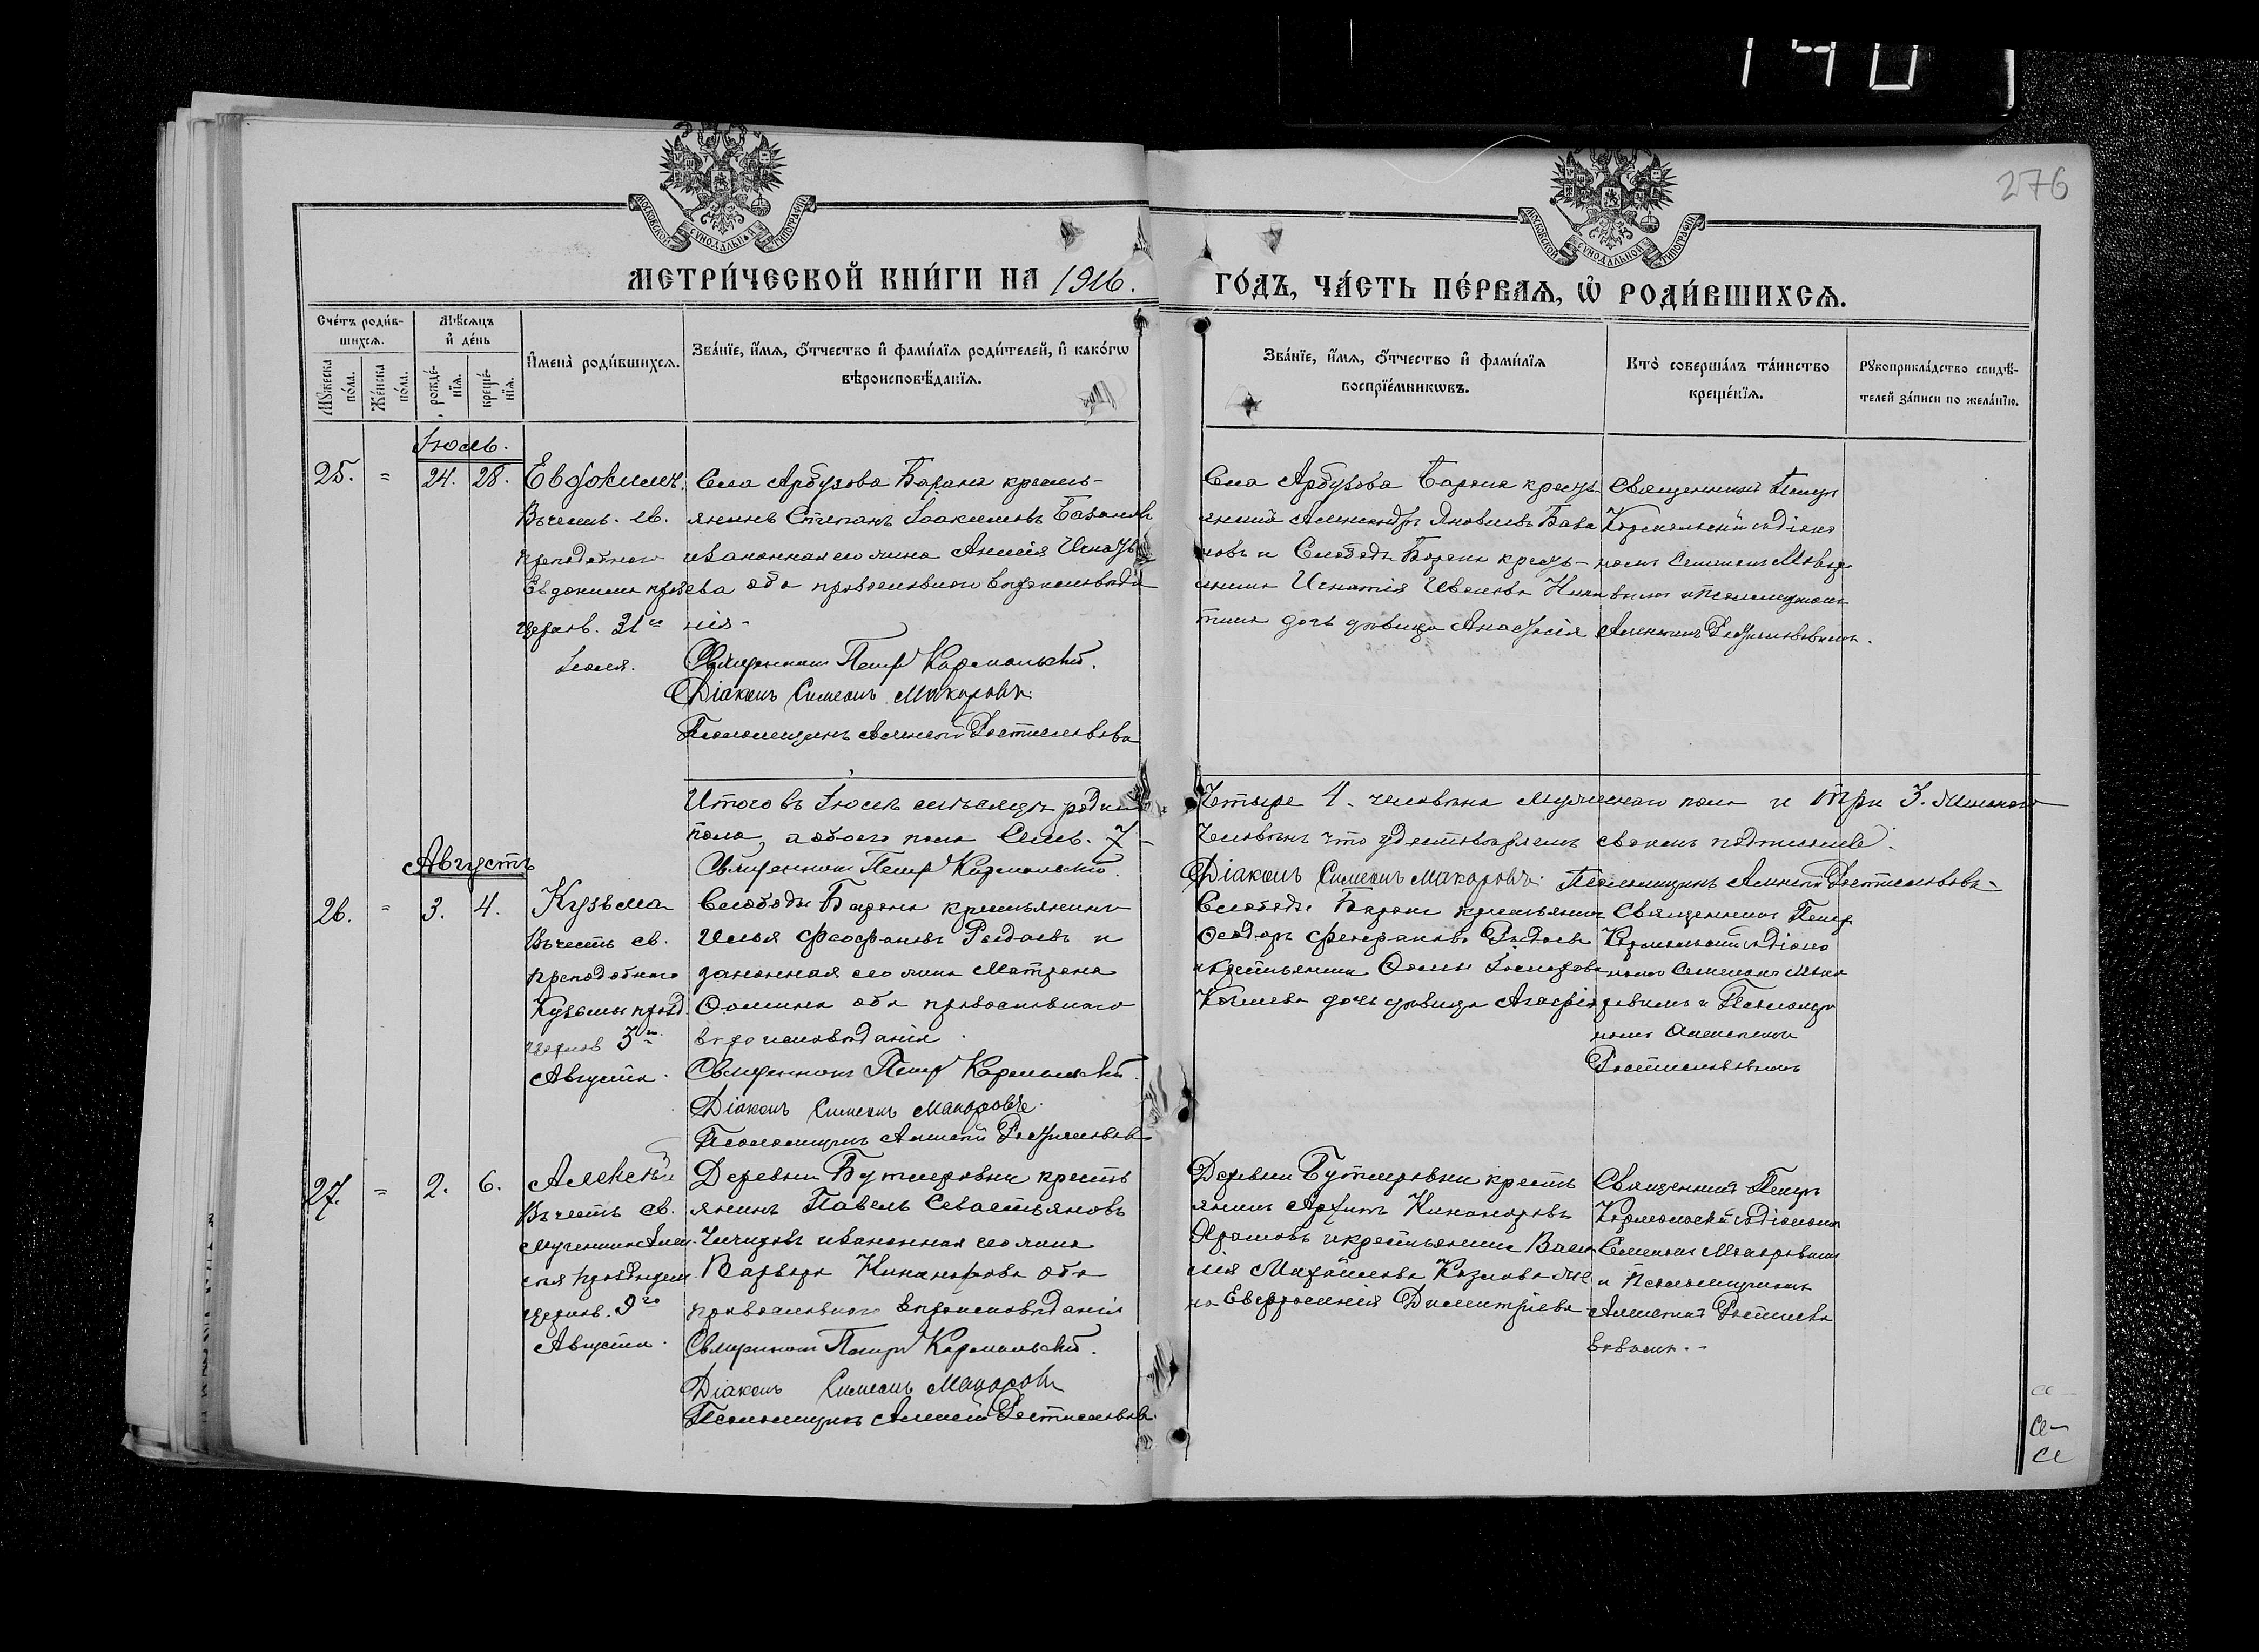 140
276
МОСКОВСКОЙ СѴНОДАЛЬНОЙ ТИПОГРАФІИ
МОСКОВСКОЙ СѴНОДАЛЬНОЙ ТИПОГРАФІИ
МЕТРИ́ЧЕСКОЙ КНИ́ГИ НА 1916.
ГО́ДЪ, ЧА́СТЬ ПЕ́РВАѦ, Ѡ҆ РОДИ́ВШИХСѦ.
Сче́тъ роди́в-
шихсѧ.
Мꙋжеска по́ла.
Же́нска по́ла.
Мѣ́сѧцъ
и҆ де́нь
рожде́-
нїѧ.
креще́-
нїѧ.
И҆мена̀ роди́вшихсѧ.
Зва́нїе, и҆́мѧ, ѻ҆́тчество и҆ фами́лїѧ роди́телей, и҆ како́гѡ
вѣроисповѣ́данїѧ.
Зва́нїе, и҆́мѧ, ѻ҆́тчество и҆ фами́лїѧ
воспрїе́мникѡвъ.
Кто̀ соверша́лъ та́инство
креще́нїѧ.
Рꙋкоприкла́дство свидѣ́-
телей за́писи по жела́нїю.
Іюль.
25. = 24. 28.
Евдокимъ.
Въ честь св.
преподобнаго
Евдокима празд
церков. 31го
Іюля.
Села Арбузова Барана кресть-
янинъ Стефанъ Іоакимовъ
и законная его жена Анисія
оба православнаго вѣроисповѣда
нія-
Священникъ Петръ Кармальскій.
Діаконъ Симеонъ Макаровъ.
Псаломщикъ Алексей Ростиславовъ
Села Арбузова Барана кресть
янинъ Александръ Яковлевъ
новъ и Слободы Барана кресть-
янина Игнатія Иванова
тина дочь дѣвица Анастасія
Священникъ Петръ
Кармальскій съ діако
номъ Симеономъ Макаро
вымъ и Псаломщикомъ
Алексеемъ Ростиславовымъ.
Итого въ Іюлѣ мѣсяцѣ родил
Четыре 4. человѣка мужескаго пола и три 3. женскаго
пола, а обоего пола Семь. 7
человѣкъ что удостовѣряемъ своею подписью.
Священникъ Петръ Кармальскій.
Діаконъ Симеонъ Макаровъ. Псаломщикъ Алексей Ростиславовъ-
Августъ
26. = 3. 4.
Кузьма
Въ честь св.
преподобнаго
Кузьмы празд.
церков 3го
Августа.
Слободы Барана крестьянинъ
Илья Феофановъ и
законная его жена Матрена
Фомина оба православнаго
вѣроисповѣданія.
Священникъ Петръ Кармальскій.
Діаконъ Симеонъ Макаровъ.
Псаломщикъ Алексей Ростиславовъ
Слободы Барана крестьянинъ
Феодоръ Феофановъ
и крестьянина Фомы
дочь дѣвица Агафія
Священникъ Петръ
Кармальскій съ діако
номъ Симеономъ Мака
ровымъ и Псаломщи
комъ Алексеемъ
Ростиславовымъ
27. = 2. 6.
Алексѣй
Въ честь св.
мученика Алек
сія празднуем
церков. 9го
Августа.
Деревни Бутлеровки кресть
янинъ Павелъ Севастьяновъ
и законная его жена
Варвара Никанорова оба
православнаго вѣроисповѣданія
Священникъ Петръ Кармальскій.
Діаконъ Симеонъ Макаровъ
Псаломщикъ Алексей Ростиславовъ.
Деревни Бутлеровки кресть
янинъ Никаноровъ
и крестьянина Васи
лія Михайлова Козлова же
на Евфросинія Димитріева
Священникъ Петръ
Кармальскій съ діакономъ
Симеономъ Макаровымъ
и Псаломщикомъ
Алексеемъ Ростисла
вовымъ.-